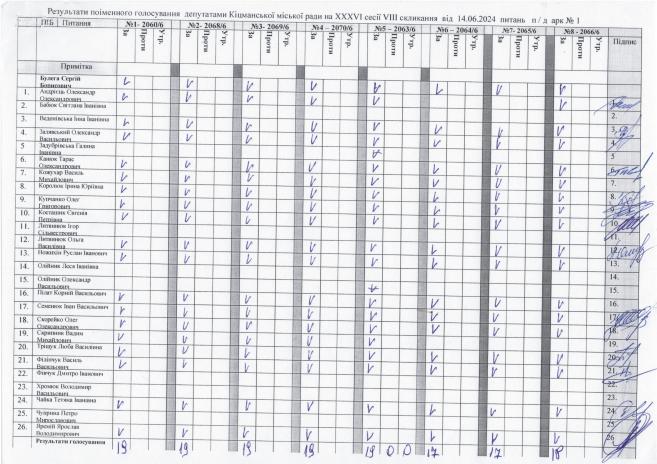 Результати поіменного голосування депутатами Кіцманської міської ради на XXXVI сесії VIII скликання від 14.06.2024 питань п/д арк № 1
ПІБ Питання №1- 2060/6 №2- 2068/6 №3- 2069/6 №4 – 2070/6 №5 – 2063/6 №6 – 2064/6 №7- 2065/6 №8 - 2066/6 Підпис
За Проти Утр. За Проти Утр. За Проти Утр. За Проти Утр. За Проти Утр. За Проти Утр. За Проти Утр. За Проти Утр.
Примітка
Булега Сергій Борисович
1. Андрієць Олександр Олександрович
2. Бабюк Світлана Іванівна 2.
3. Веденівська Інна Іванівна 3.
4. Задявський Олександр Васильович 4.
5 Задубрівська Галина Іванівна 5
6. Канюк Тарас Олександрович 6.
7. Кожухар Василь Михайлович 7.
8. Королюк Ірина Юріївна 8.
9. Купчанко Олег Григорович 9.
10. Косташик Євгенія Петрівна 10.
11. Литвинюк Ігор Сільвестрович 11.
12. Литвинюк Ольга Василівна
13. Ножихін Руслан Іванович 13.
14. Олійник Леся Іванівна 14.
15. Олійник Олександр Васильович 15.
16. Пілат Корній Васильович 16.
17. Семенюк Іван Васильович 17.
18. Скорейко Олег Олександрович 18.
19. Скрипник Вадим Михайлович 19.
20. Тріщук Люба Василівна 20.
21. Філіпчук Василь Васильович 21.
22. Фінчук Дмитро Іванович 22.
23. Хромюк Володимир Васильович 23.
24. Чайка Тетяна Іванівна 24.
25. Чуприна Петро Мирославович 25.
26. Яремій Ярослав Володимирович 26.
Результати голосування 19 19 19 19 19 0 0 17 17 18